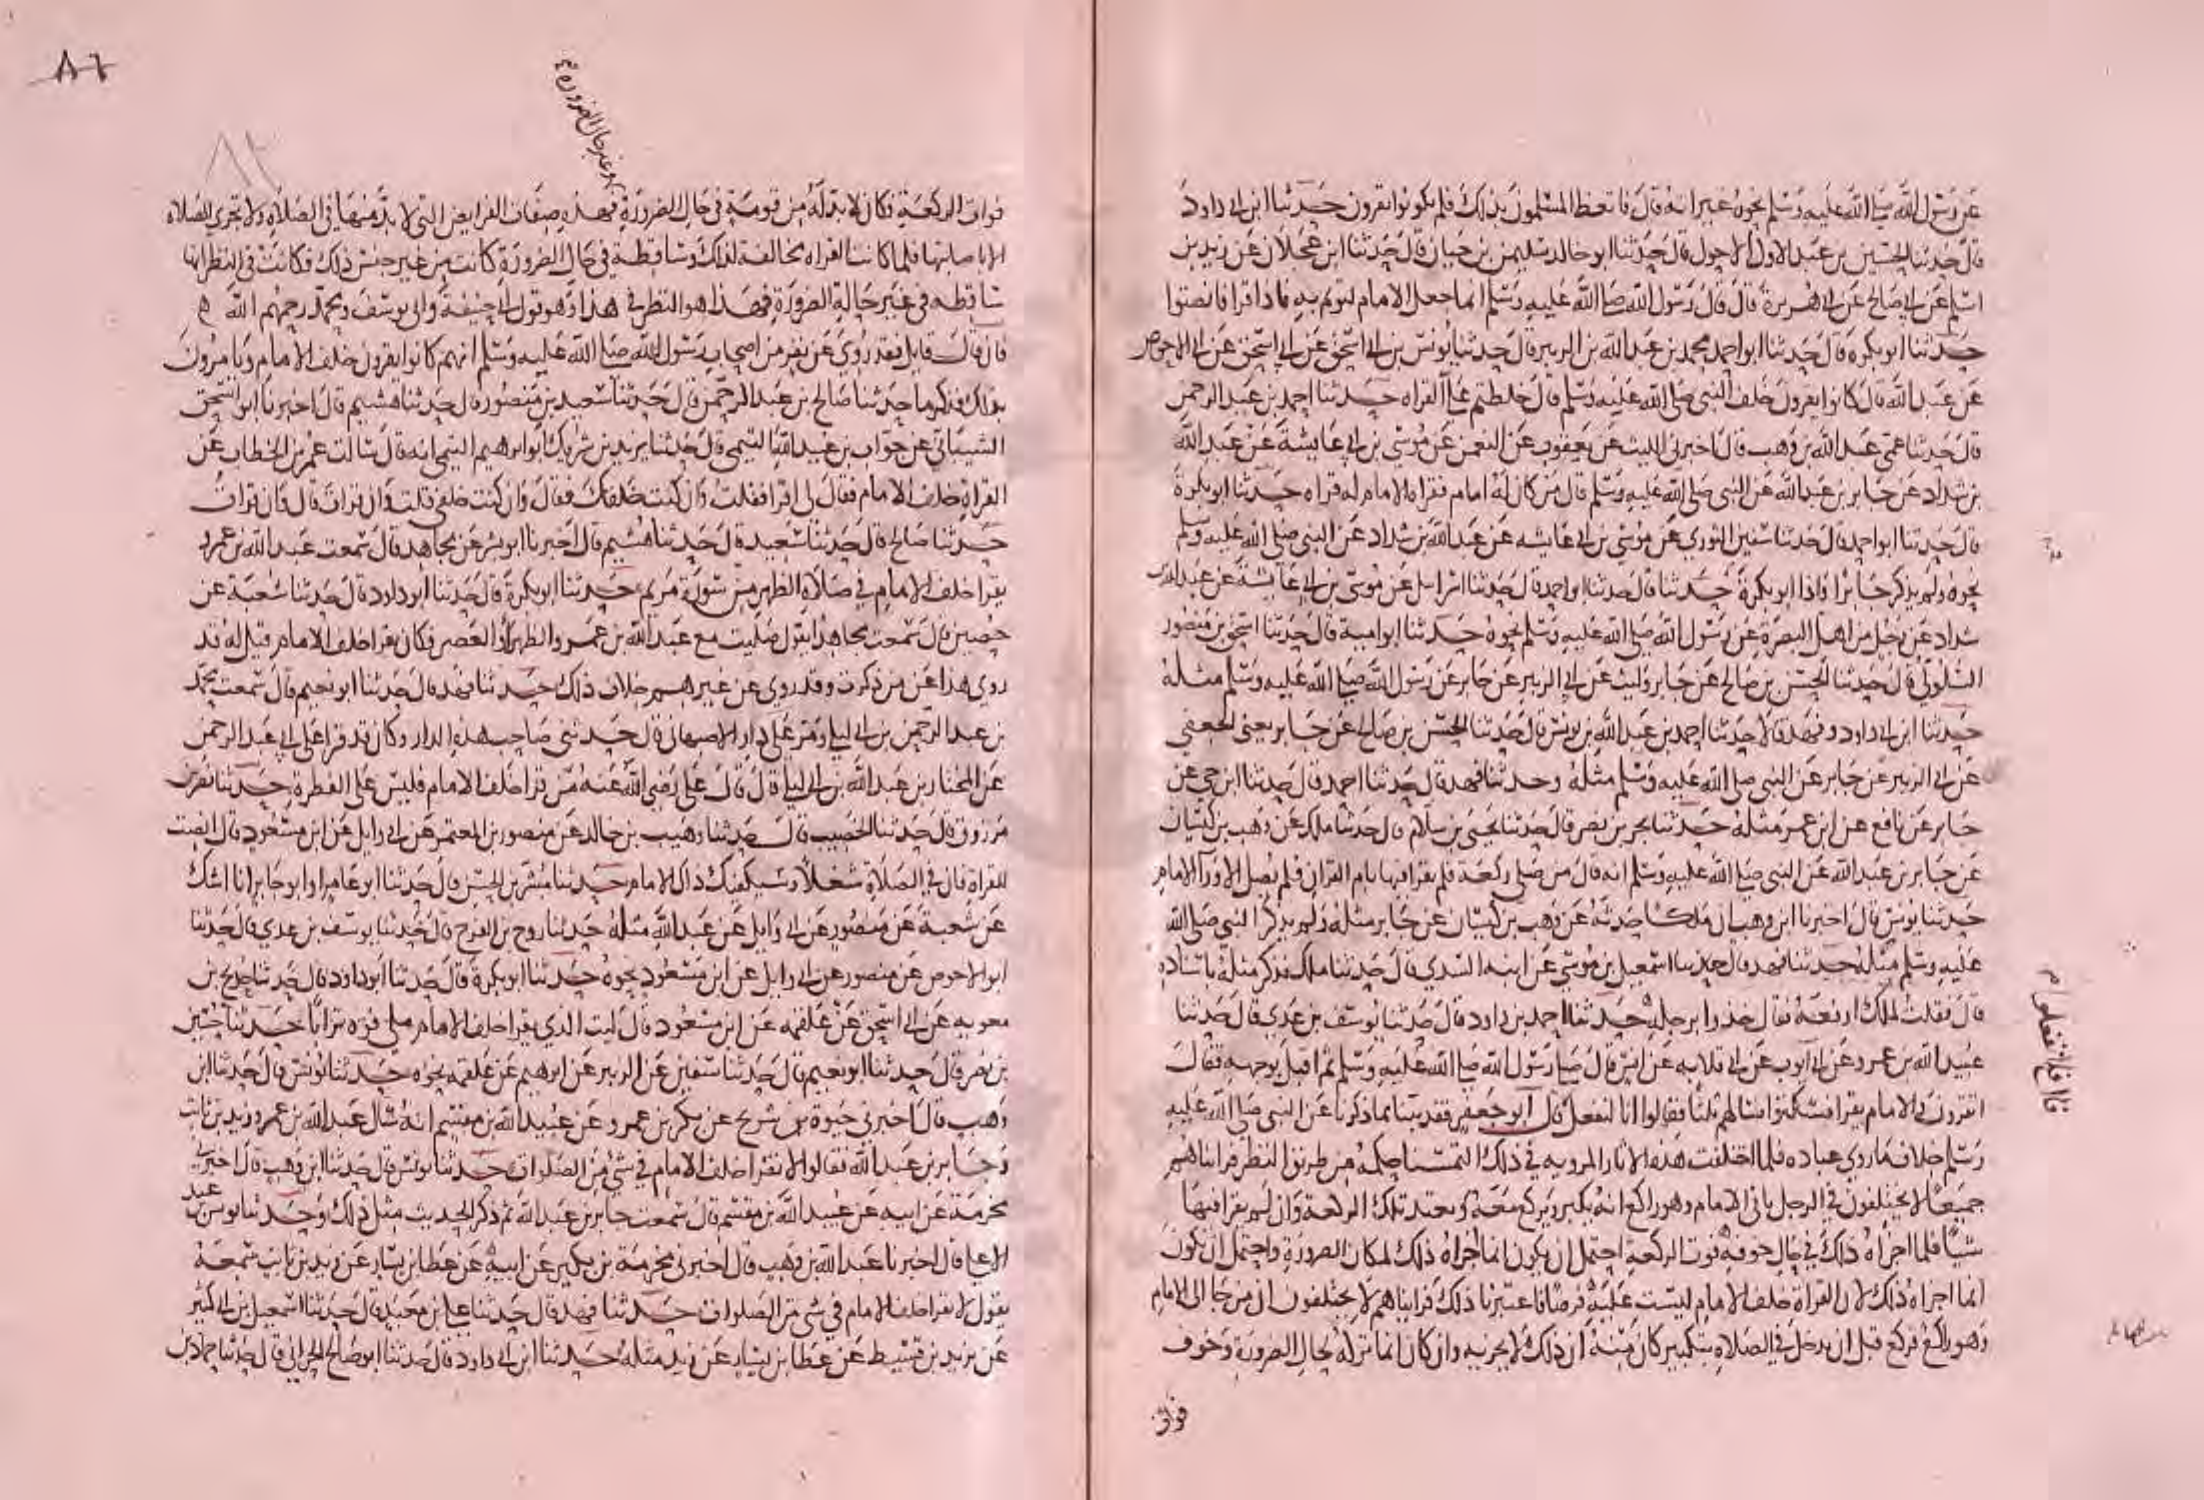 عن رسول الله صلى الله عليه وسلم نحوه غير انه قال فاتعظ المسلمون بذلك فلم يكونوا يقرون حدثنا ابن ابي داود
قال حدثنا الحسين بن عبد الاول الاحول قال حدثنا ابو خالد سليمن بن حيان قال حدثنا ابن عجلان عن زيد بن
اسلم عن ابي صالح عن ابي هريرة قال قال رسول الله صلى الله عليه وسلم انما جعل الامام ليوتم به فاذا قرا فانصتوا
حدثنا ابو بكرة قال حدثنا ابو احمد محمد بن عبد الله بن الزبير قال حدثنا يونس بن ابي اسحق عن ابي اسحق عن ابي الاحوص
عن عبد الله قال كانوا يقرون خلف النبي صلى الله عليه وسلم قال خلطتم علي القراه حدثنا احمد بن عبد الرحمن
قال حدثنا عمي عبد الله بن وهب قال اخبرني الليث عن يعقوب عن النعمن عن موسى بن ابي عايشة عن عبد الله
بن شداد عن جابر بن عبد الله عن النبي صلى الله عليه وسلم قال من كان له امام فقراه الامام له قراه حدثنا ابو بكرة
قال حدثنا ابو احمد قال حدثنا سفين الثوري عن موسى بن ابي عايشه عن عبد الله بن شداد عن النبي صلى الله عليه وسلم
نحوه ولم يذكر جابرا واذا ابو بكرة حدثنا قال حدثنا ابو احمد قال حدثنا اسرايل عن موسى بن ابي عايشة عن عبد الله بن
شداد عن رجل من اهل البصرة عن رسول الله صلى الله عليه وسلم نحوه حدثنا ابو امية قال حدثنا اسحق بن منصور
السلولي قال حدثنا الحسن بن صالح عن جابر وليث عن ابي الزبير عن جابر عن رسول الله صلى الله عليه وسلم مثله
حدثنا ابن ابي داود وفهد قالا حدثنا احمد بن عبد الله بن يونس قال حدثنا الحسن بن صالح عن جابر يعني الجعفي
عن ابي الزبير عن جابر عن النبي صلى الله عليه وسلم مثله وحدثنا فهد قال حدثنا احمد قال حدثنا ابن حي عن
جابر عن نافع عن ابن عمر مثله حدثنا بحر بن نصر قال حدثنا يحيى بن سلام قال حدثنا ملك عن وهب بن كيسان
عن جابر بن عبد الله عن النبي صلى الله عليه وسلم انه قال من صلى ركعة فلم يقرا فيها بام القران فلم يصل الا ورا الامام
حدثنا يونس قال اخبرنا ابن وهب ان ملكا حدثه عن وهب بن كيسان عن جابر مثله ولم يذكر النبي صلى الله
عليه وسلم مثله حدثنا فهد قال حدثنا اسمعيل بن موسى عن ابنه السدي قال حدثنا ملك فذكر مثله باسناده
قال فقلت لملك ارفعه فقال خذوا برجله حدثنا احمد بن داود قال حدثنا يوسف بن عدي قال حدثنا
عبيد الله بن عمرو عن ايوب عن ابي قلابه عن انس قال صلى رسول الله صلى الله عليه وسلم ثم اقبل بوجهه فقال
اتقرون والامام يقرا فسكتوا فسالهم ثلثا فقالوا انا لنفعل قال ابو جعفر فقد بينا بما ذكرنا عن النبي صلى الله عليه
وسلم خلاف ما روى عباده فلما اختلفت هذه الاثار المرويه في ذلك التمسنا حكمه من طريق النظر فراينا هم
جميعا لا يختلفون في الرجل ياتي الامام وهو راكع انه يكبر ويركع معه ويعتد تلك الركعة وان لم يقرا فيها
شيا فلما اجزاه ذلك في حال خوفه فوت الركعة احتمل ان يكون انما اجزاه ذلك لمكان الضرورة واحتمل ان يكون
انما اجزاه ذلك لان القراة خلف الامام ليست عليه فرضا فاعتبرنا ذلك فرايناهم لا يختلفون ان من جا الى الامام
وهو راكع فركع قبل ان يدخل في الصلاه بتكبير كان منه ان ذلك لا يجزيه وان كان انما تركه لحال الضرورة وخوف
فوات
فوات الركعة فكان لا بد له من قومة في حال الضرورة فهذه صفات الفرايض التي لا بد منها في الصلاه ولا تجزي الصلاه
الا باصابتها فلما كانت القراه مخالفة لذلك وساقطة في حال الضرورة كانت من غير جنس ذلك فكانت في النظر انها
ساقطه في غير حالة الضرورة فهذا هو النظر في هذا وهو قول ابي حنيفة وابي يوسف ومحمد رحمهم الله
فان قال قايل فقد روي عن نفر من اصحاب رسول الله صلى الله عليه وسلم انهم كانوا يقرون خلف الامام ويامرون
بذلك فذكر ما حدثنا صالح بن عبد الرحمن قال حدثنا سعيد بن منصور قال حدثنا هشيم قال اخبرنا ابو اسحق
الشيباني عن جواب بن عبيد الله التيمي قال حدثنا يزيد بن شريك ابو ابرهيم التيمي انه قال سالت عمر بن الخطاب عن
القراة خلف الامام فقال لي اقرا فقلت وان كنت خلفك فقال وان كنت خلفي قلت وان قرات قال وان قرات
حدثنا صالح قال حدثنا سعيد قال حدثنا هشيم قال اخبرنا ابو بشر عن مجاهد قال سمعت عبد الله بن عمرو
يقرا خلف الامام في صلاة الظهر من سورة مريم حدثنا ابو بكرة قال حدثنا ابو داود قال حدثنا شعبة عن
حصين قال سمعت مجاهدا يقول صليت مع عبد الله بن عمرو الظهر او العصر فكان يقرا خلف الامام قيل له قد
روي هذا عن من ذكرت وقد روي عن غيرهم خلاف ذلك حدثنا فهد قال حدثنا ابو نعيم قال سمعت محمد
بن عبد الرحمن بن ابي ليلى ومر على دار الاصبهاني قال حدثني صاحب هذه الدار وكان قد قرا على ابي عبد الرحمن
عن المختار بن عبد الله بن ابي ليلى قال قال علي رضي الله عنه من قرا خلف الامام فليس على الفطرة حدثنا نصر بن
مرزوق قال حدثنا الخصيب قال حدثنا وهيب بن خالد عن منصور بن المعتمر عن ابي وايل عن ابن مسعود قال انصت
للقراه فان في الصلاة شغلا وسيكفيك ذاك الامام حدثنا مبشر بن الحسن قال حدثنا ابو عامر او ابو جابر انا اشك
عن شعبة عن منصور عن ابي وايل عن عبد الله مثله حدثنا روح بن الفرج قال حدثنا يوسف بن عدي قال حدثنا
ابو الاحوص عن منصور عن ابي وايل عن ابن مسعود نحوه حدثنا ابو بكرة قال حدثنا ابو داود قال حدثنا حديج بن
معويه عن ابي اسحق عن علقمه عن ابن مسعود قال ليت الذي يقرا خلف الامام ملي فوه ترابا حدثنا حسين
بن نصر قال حدثنا ابو نعيم قال حدثنا سفين عن الزبير عن ابرهيم عن علقمه نحوه حدثنا يونس قال حدثنا ابن
وهب قال اخبرني حيوة بن شريح عن بكر بن عمرو عن عبيد الله بن مقسم انه سال عبد الله بن عمر وزيد بن ثابت
وجابر بن عبد الله فقالوا لا تقرا خلف الامام في شئ من الصلوات حدثنا يونس قال حدثنا ابن وهب قال اخبرني
مخرمة عن ابيه عن عبيد الله بن مقسم قال سمعت جابر بن عبد الله ثم ذكر الحديث مثل ذلك وحدثنا يونس بن عبد
الاعلى قال اخبرنا عبد الله بن وهب قال اخبرني مخرمة بن بكير عن ابيه عن عطا بن يسار عن زيد بن ثابت سمعه
يقول لا تقرا خلف الامام في شئ من الصلوات حدثنا فهد قال حدثنا علي بن معبد قال حدثنا اسمعيل بن ابي كثير
عن يزيد بن قسيط عن عطا بن يسار عن زيد مثله حدثنا ابن ابي داود قال حدثنا ابو صالح الحراني قال حدثنا حماد بن
وغير حال الضروره
٨٦